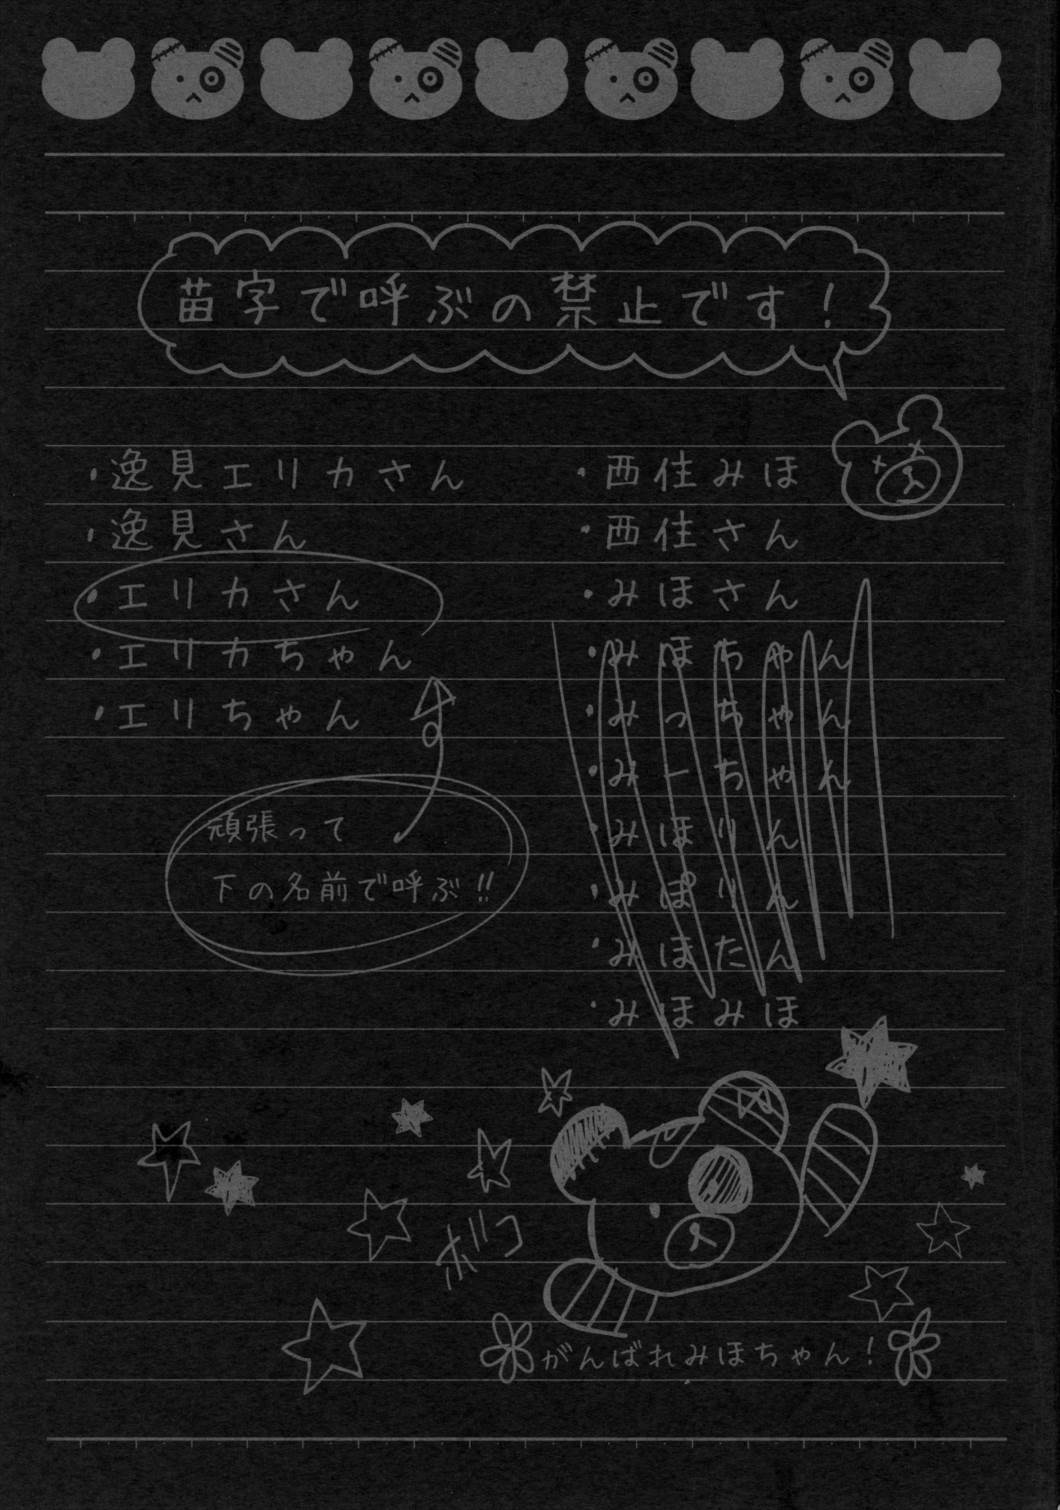 苗字で呼ぶの禁止です！
・逸見エリカさん
・逸見さん
・エリカさん
・エリカちゃん
・エリちゃん
頑張って
下の名前で呼ぶ!!
・西住みほ
・西住さん
・みほさん
・みほちゃん
・みっちゃん
・みーちゃん
・みほりん
・みぽりん
・みほたん
・みほみほ
ボコ
がんばれみほちゃん！